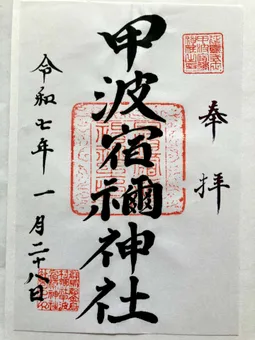 奉拝
甲波宿禰神社
令和七年一月二十八日